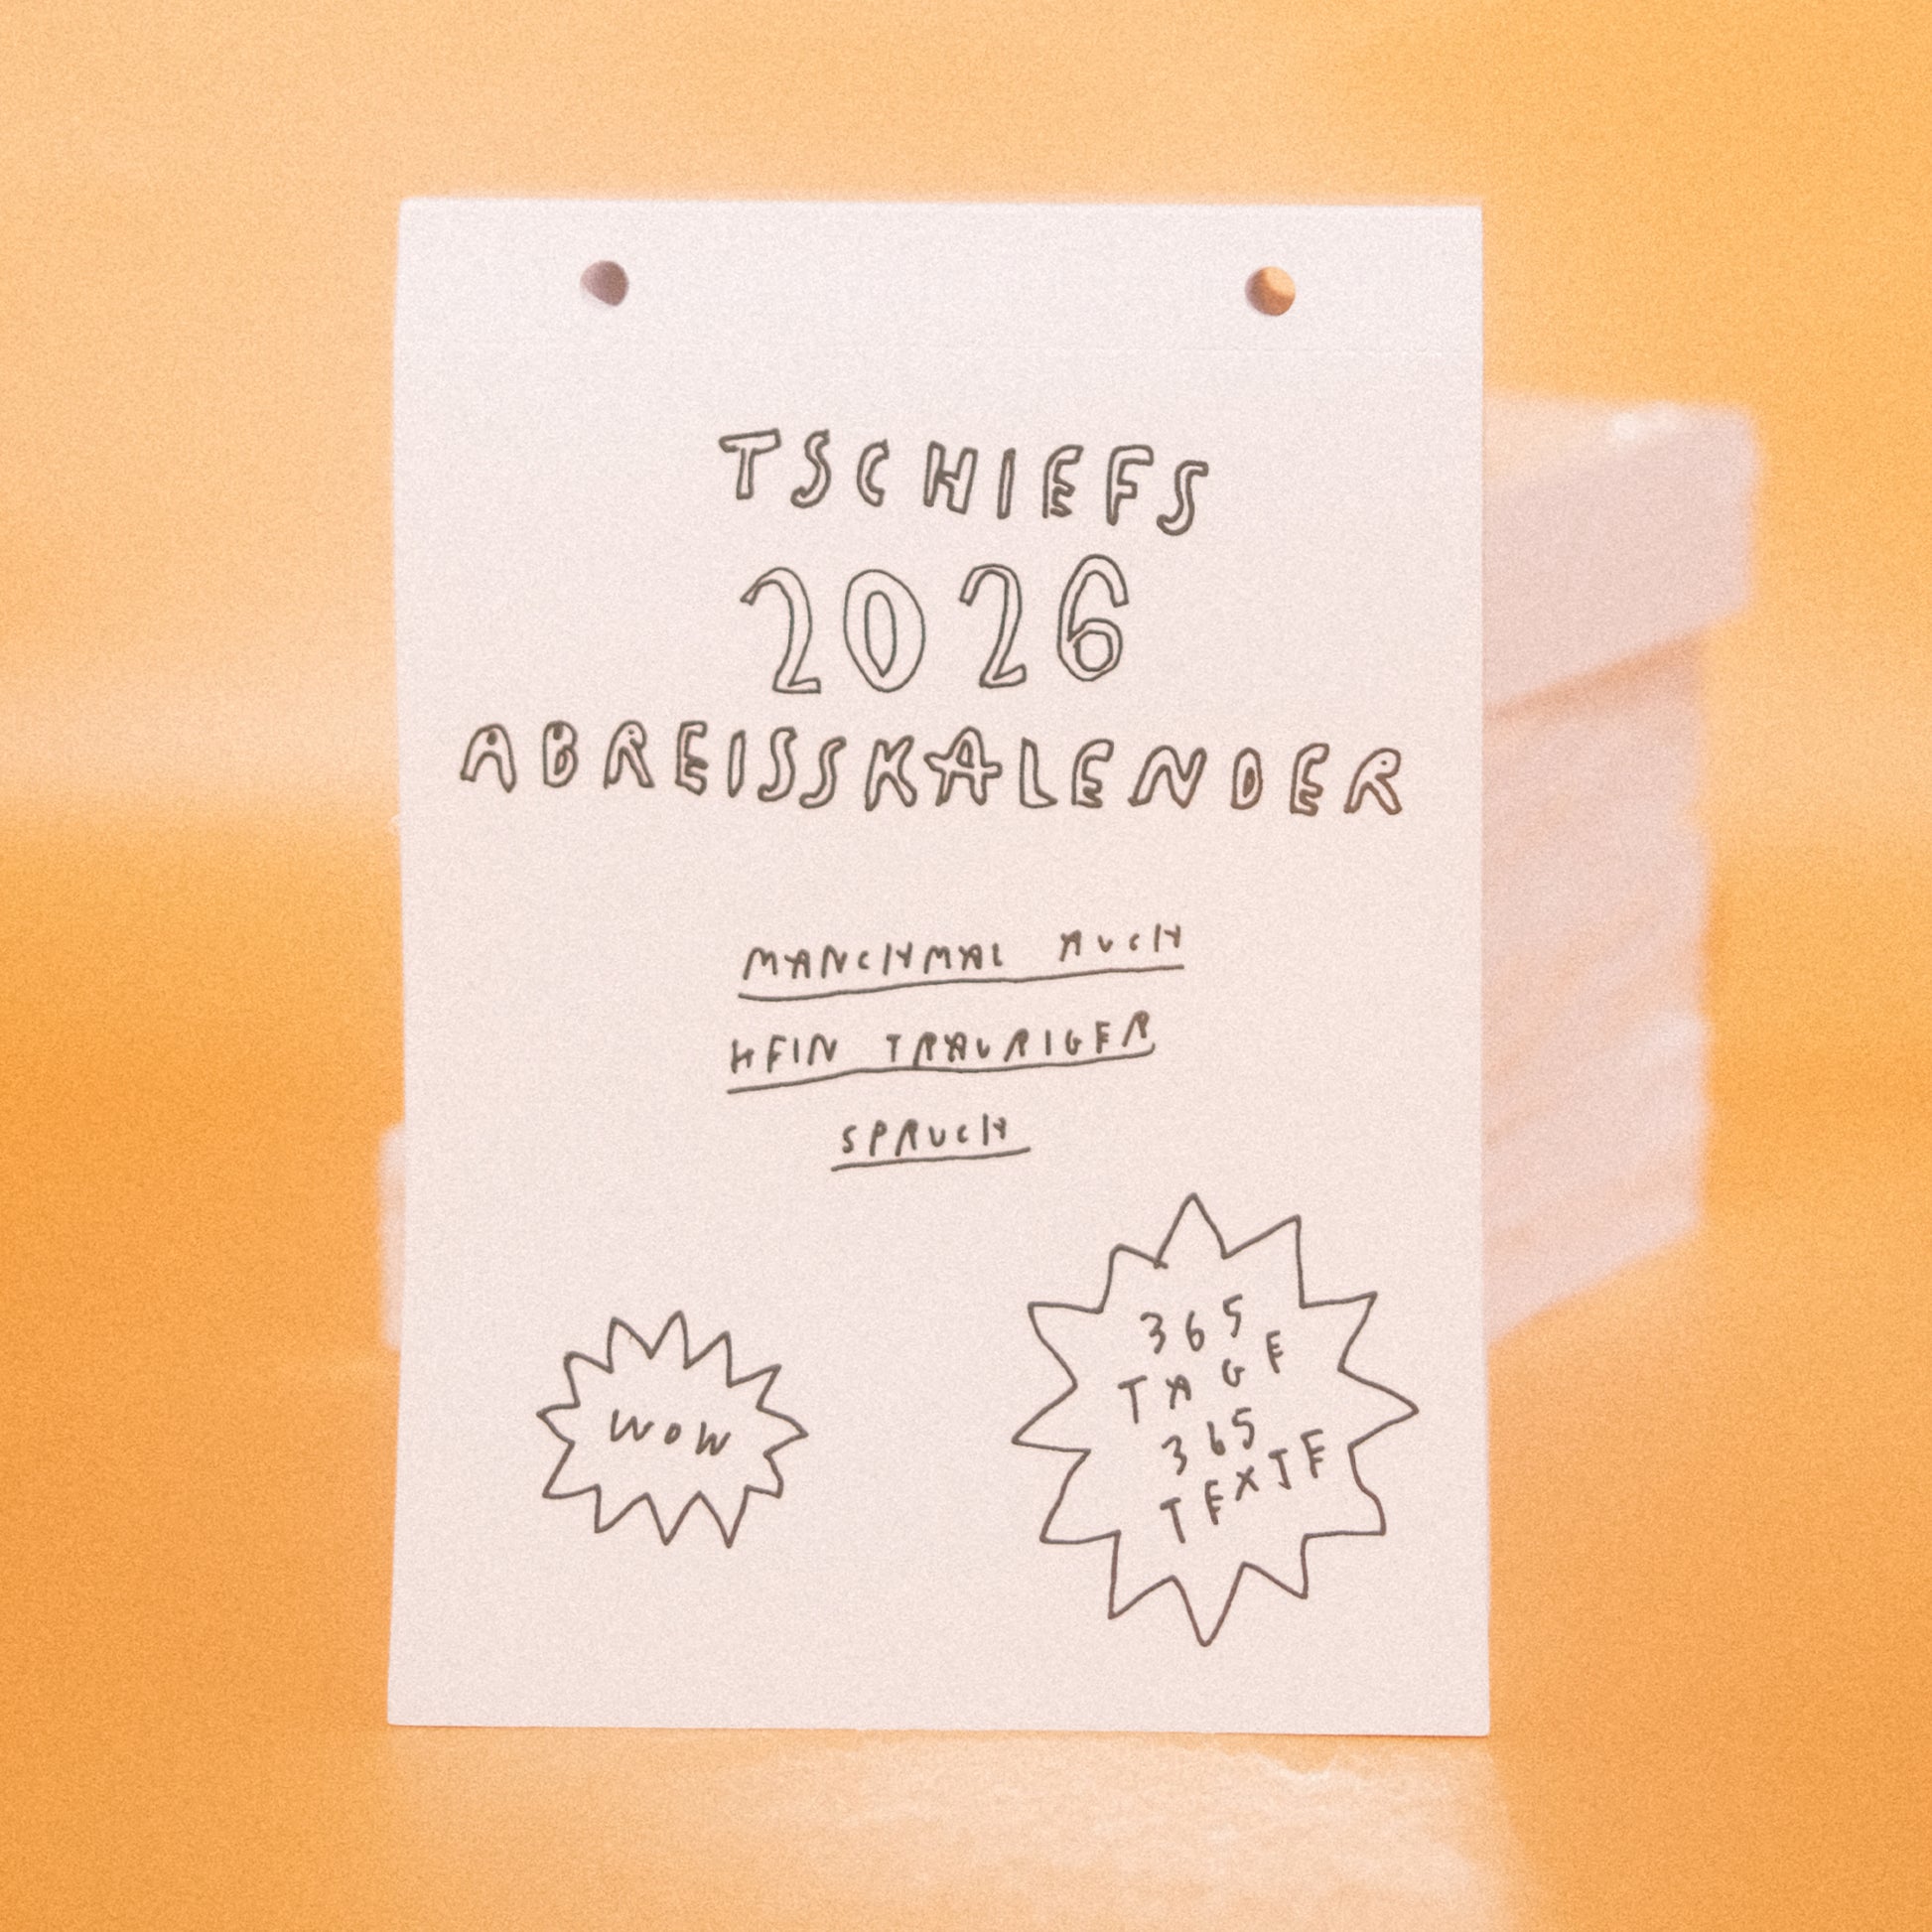 TSCHIEFS
2026
ABREISSKALENDER
MANCHMAL AUCH
KEIN TRAURIGER
SPRUCH
WOW
365
TAGE
365
TEXTE